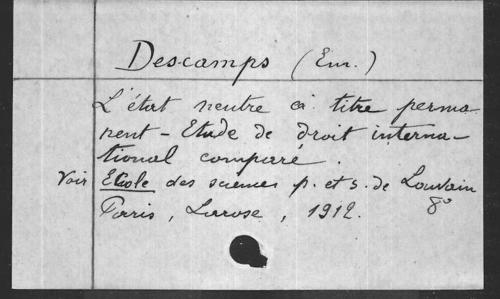 Descamps (Em.)
L'état neutre à titre perma-
nent - Etude de droit interna-
tional comparé.
Voir Ecole des sciences p. et s. de Louvain
Paris, Larose, 1912. 8°